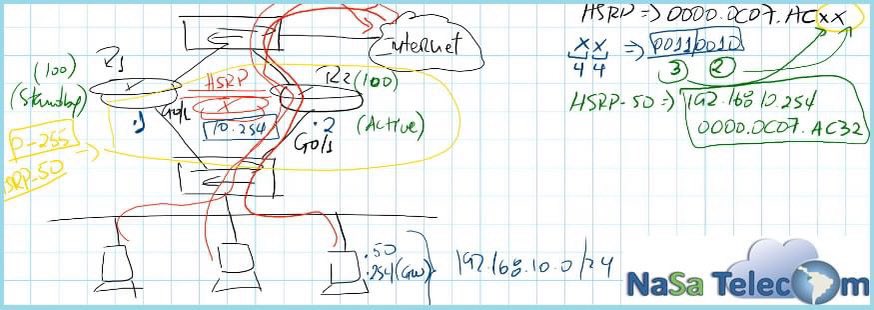 HSRP => 0000.0C07.ACXX
Internet
XX => 0011 0010
4 4
3 2
R1
(100)
(Standby)
HSRP
R2 (100)
HSRP-50 => 192.168.10.254
0000.0C07.AC32
G0/1
.1
10.254
.2
G0/1
(Active)
P-255
HSRP-50
.50
.254 (GW)
192.168.10.0/24
NaSa Telecom